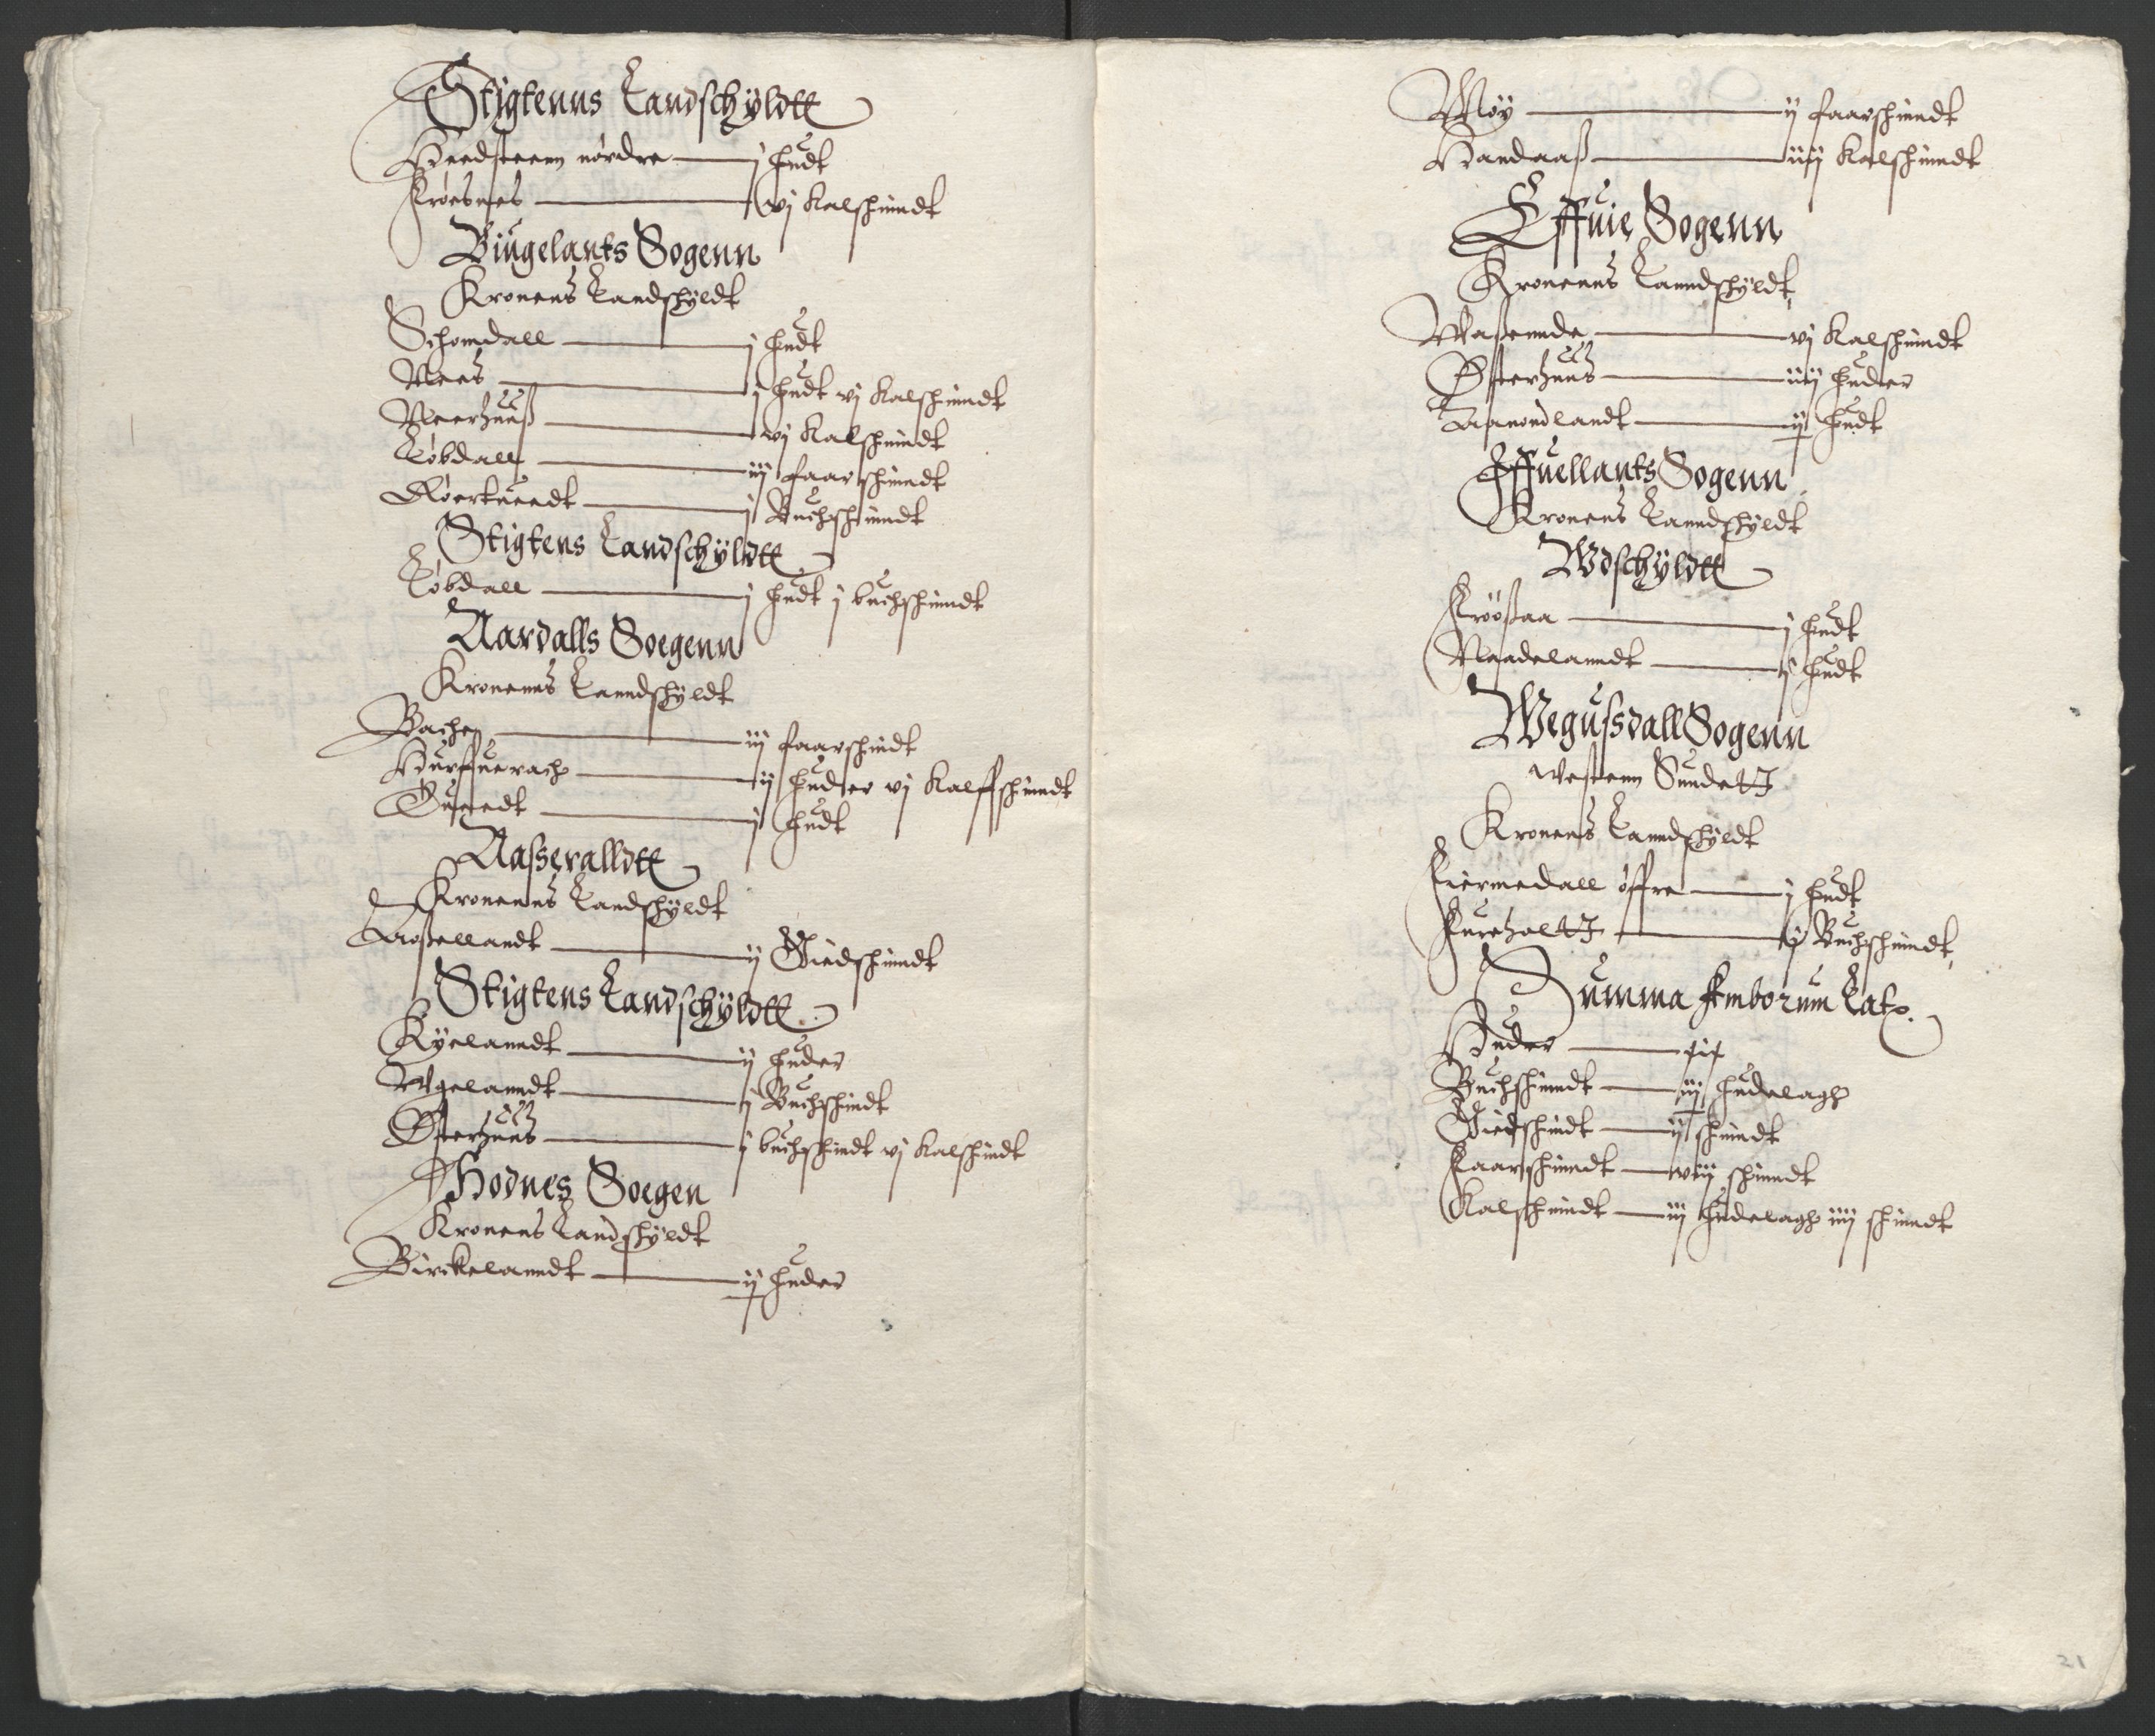 Stigtenns Landschÿldtt
Heedsteenn nørdre — j hudt
Frøesnes — vj Kalschinndt
Biugelants Sogenn
Kronens Landschÿldt
Schomdall — j hudt
Nees — j hudt vj Kalschinndt
Neerhuuß — vj Kalschinndt
Løbdall — iij faarschinndt
Røertueedt — j Buchschinndt
Stigtens Landschÿldtt
Løbdall — j hudt j buchschinndt
Aardalls Soegenn
Kronenns Lanndschÿldt
Bache — iij faarschindt
Hurfuerach — ij huder vj Kalffschinndt
Tueedt — j hudt
Aasseralldtt
Kronenns Landschÿldt
Aaßellandt — ij Giedschinndt
Stigtens Landschÿldtt
Kÿelanndt — ij huder
Ugelanndt — j Buchschindt
Østerhuus — j buchschindt vj Kalschindt
Hodnes Soegen
Kronens Landschÿldt
Birckelanndt — ij huder
Møÿ — ij faarschinndt
Handaaß — iiij Kalschinndt
Effuie Sogenn
Kronenns Lanndschÿldt
Waßennde — vj Kalschindt
Østerhuus — iij huder
Aamondlandt — ij hudt
Iffuellants Sogenn
Kronens Lanndschÿldt
Wdschÿldtt
Frøößaa — j hudt
Naadelanndt — j hudt
Wegußdall Sogenn
westenn Sundett
Kronens Lanndschÿldt
Fiermedall øffre — j hudt
Furehaltt — ij Buchschinndt
Summa Amborum Lat.
Huder — xix
Buchschinndt — iij hudelagh
Giedschindt — ij schinndt
Faarschinndt — viij schinndt
Kalschindt — iij hudelagh iiij schinndt
21